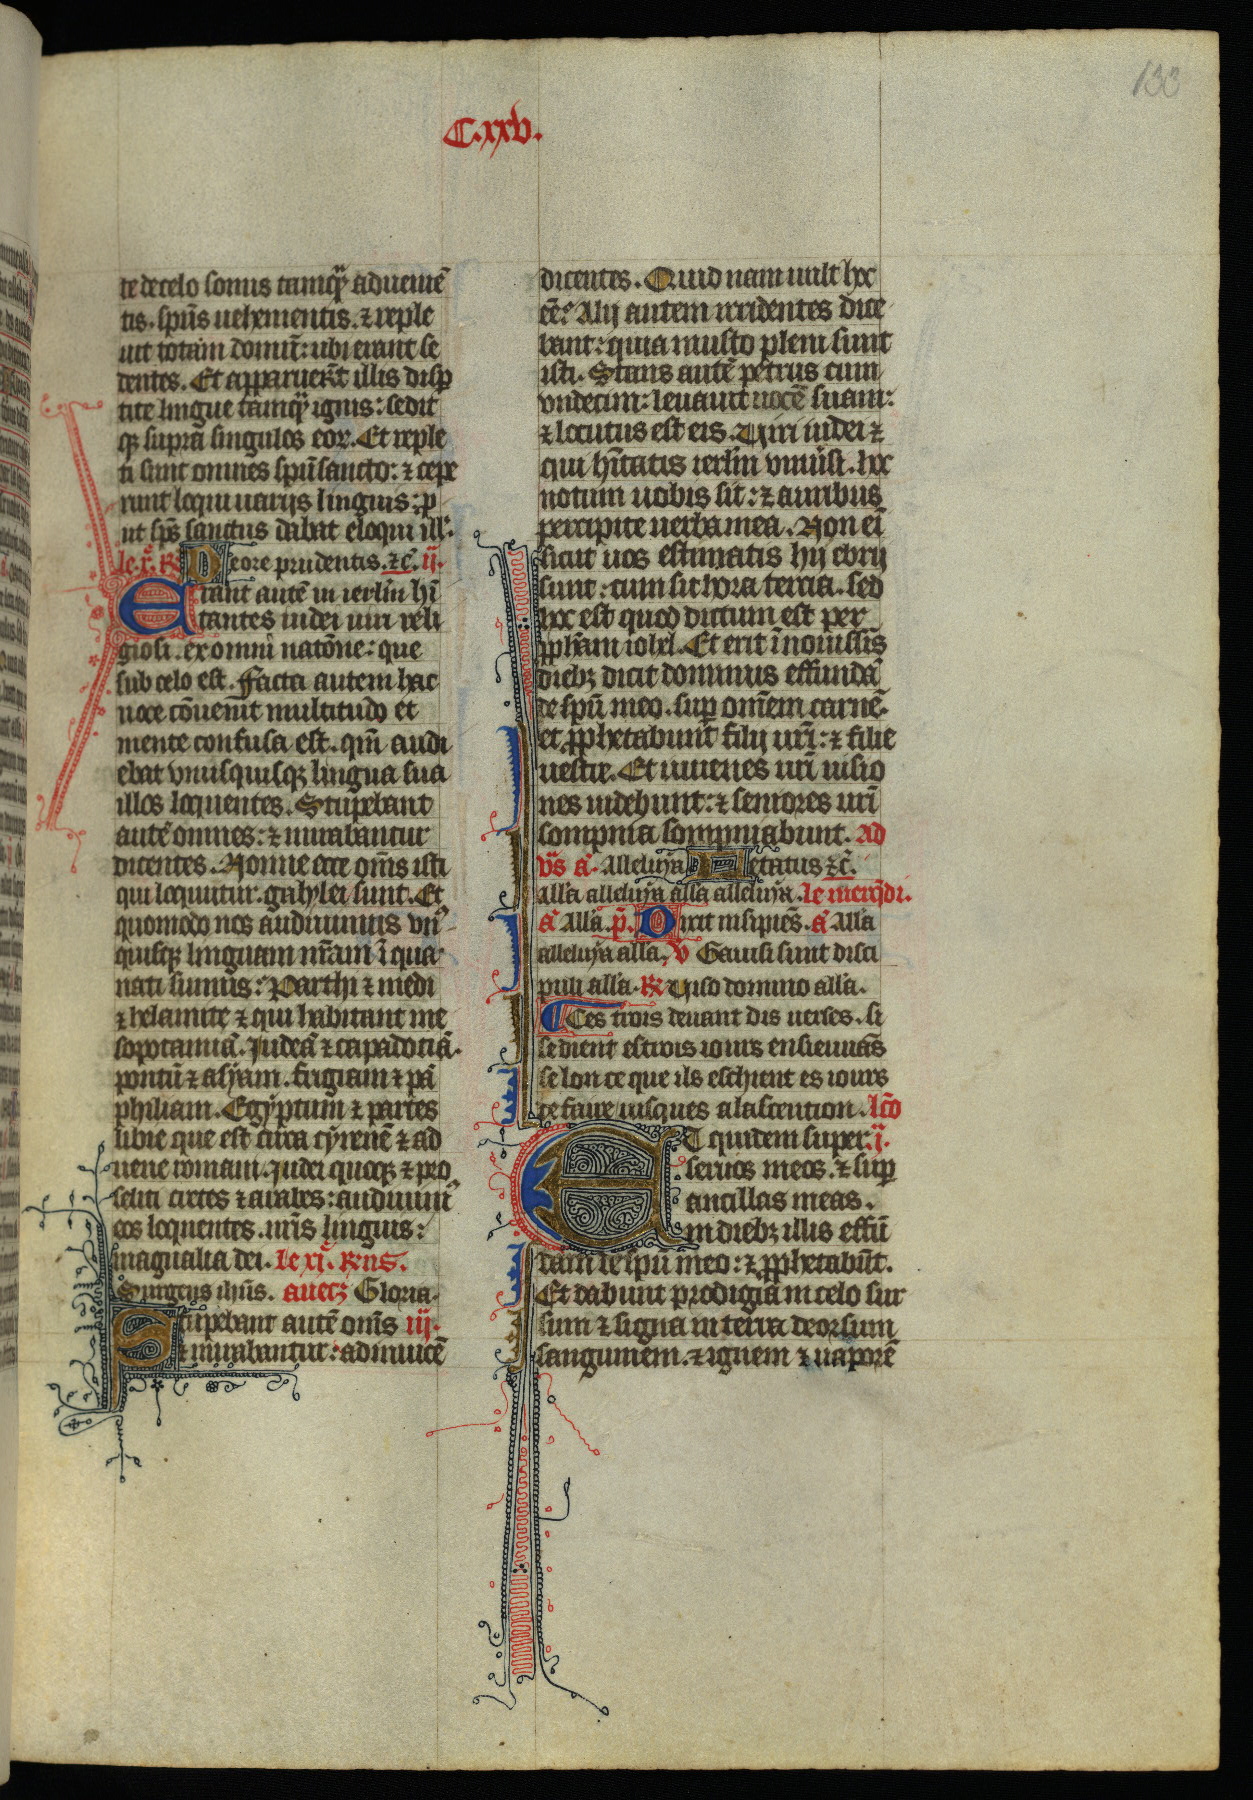 133
C.xxv.
te de celo sonus tamq̃ʒ aduenie᷑
tis. spũs uehementis. ⁊ reple
uit totam domũ: ubi erant se
dentes. Et apparuer̃t illis disp
tite lingue tamq̃ʒ ignis: sedit
qʒ supra singulos eoꝝ. Et reple
ti sunt omnes spũ sancto: ⁊ cepe
runt loqui uarijs linguis: p
ut sp̃s sanctus dabat eloqui ill'.
le. x̃. ℟ De ore prudentis. ⁊c̃. ij.
Erant autẽ in ierlm̃ hĩ
tantes iudei uiri reli
giosi. ex omni natõne: que
sub celo est. Facta autem hac
uoce cõuenit multitudo et
mente confusa est. qm̃ audi
ebat vnusquisqʒ lingua sua
illos loquentes. Stupebant
autẽ omnes: ⁊ mirabantur
dicentes. Nonne ecce om̃s isti
qui loquutur. galylei sunt. Et
quomodo nos audiuimus vn᷑
quisqʒ linguam nr̃am ĩ qua
nati sumus: Parthi ⁊ medi
⁊ helamite ⁊ qui habitant me
sopotamiã. Iudeã ⁊ capadociã.
pontũ ⁊ asyam. frigiam ⁊ pã
philiam. Egyptum ⁊ partes
libie que est circa cyrenẽ ⁊ ad
uene romani. Iudei quoqʒ ⁊ pro
seliti cretes ⁊ arabes: audiuim᷒
eos loquentes. nr̃is linguis:
magnalia dei. le xj̃. ℟ns.
Surgens ih̃us. auecʒ Gloria.
Stupebant autẽ om̃s iij.
⁊ mirabantur: ad inuicẽ
dicentes. Quid nam uult hec
eẽ? Alij autem irridentes dice
bant: quia musto pleni sunt
isti. Stans autẽ petrus cum
vndecim: leuauit uocẽ suam:
⁊ locutus est eis. Uiri iudei ⁊
qui hĩtatis ierlm̃ vniu᷑si. hec
notum uobis sit: ⁊ auribus
percipite uerba mea. Non ei᷑
sicut uos estimatis hij ebrij
sunt: cum sit hora tercia. sed
hec est quod dictum est per
ꝓpham iohel. Et erit ĩ nouissĩs
diebʒ dicit dominus effundã
de spũ meo. sup om̃em carnẽ.
et ꝓphetabunt filij ur̃i: ⁊ filie
uestre. Et iuuenes ur̃i uisio
nes uidebunt: ⁊ seniores ur̃i
sompnia sompniabunt. ad
v̾s ã. Alleluya Letatus ⁊c̃.
alla alleluya alla alleluya. le mercq̃di.
ã Alla. p̃. Dixit insipiẽs. ã Alla
alleluya alla. ℣ Gauisi sunt disci
puli alla. ℟ Uiso domino alla.
Ces trois deuant dis uerses. si
se dient es trois iours ensieuuãs
selon ce que ils eschient es iours
de faire iusques a lascention. lc̃o
Et quidem super ij.
seruos meos. ⁊ sup
ancillas meas.
in diebʒ illis effũ
dam de spũ meo: ⁊ ꝓphetabũt.
Et dabunt prodigia in celo sur
sum ⁊ signa in terra deorsum
sanguinem. ⁊ ignem ⁊ uaporẽ